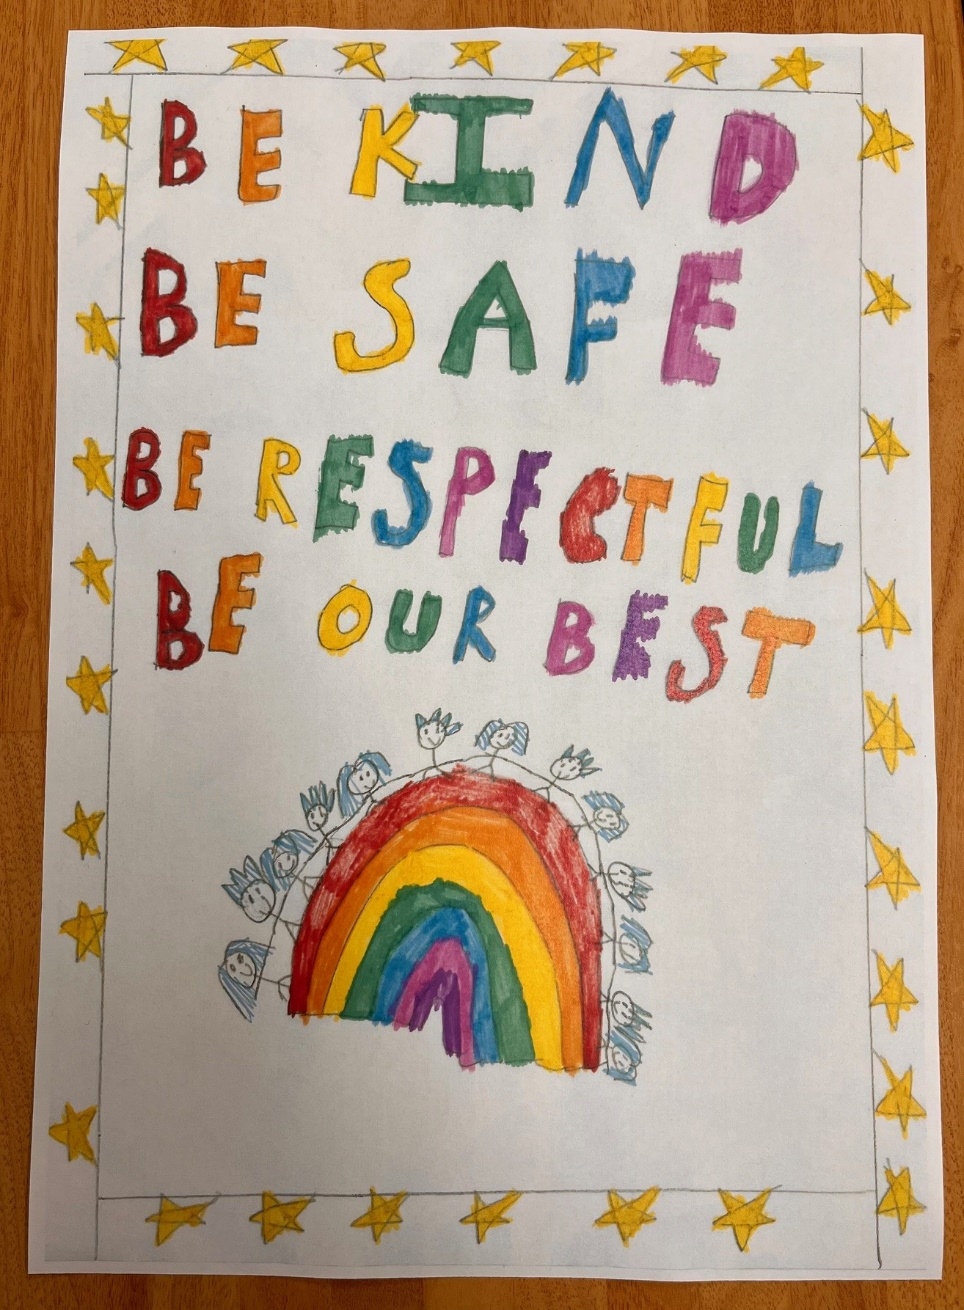 BE KIND
BE SAFE
BE RESPECTFUL
BE OUR BEST